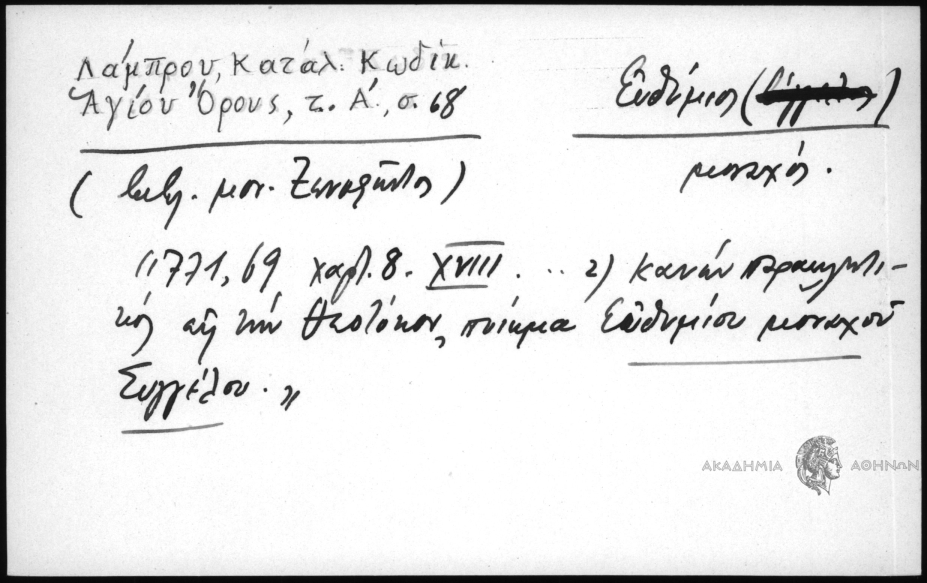 Λάμπρου, Κατάλ. Κωδίκ.
Ἁγίου Ὄρους, τ. Α΄., σ. 68
Εὐθύμιος (
)
μοναχός.
(βιβλ. μον. Ξενοφῶντος)
"771, 69 χαρτ. 8. XVIII. ... 2) Κανὼν παρακλητι-
κὸς εἰς τὴν Θεοτόκον, ποίημα Εὐθυμίου μοναχοῦ
Συγγέλου. "
ΑΚΑΔΗΜΙΑ ΑΘΗΝΩΝ